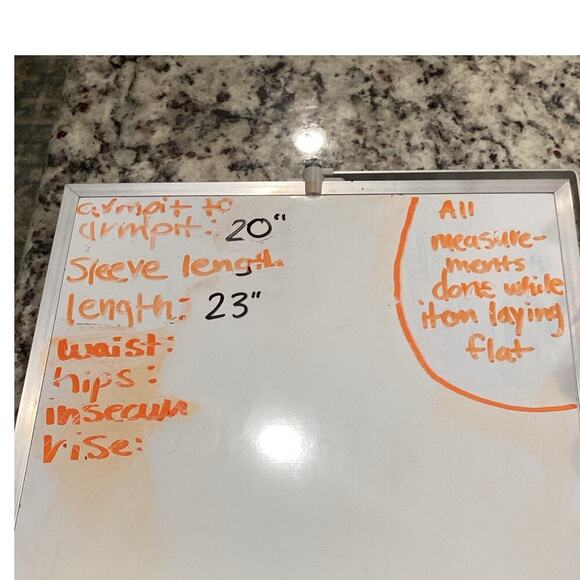 armpit to
armpit: 20"
Sleeve length
length: 23"
waist:
hips:
inseam
rise:
All
measure-
ments
done while
item laying
flat